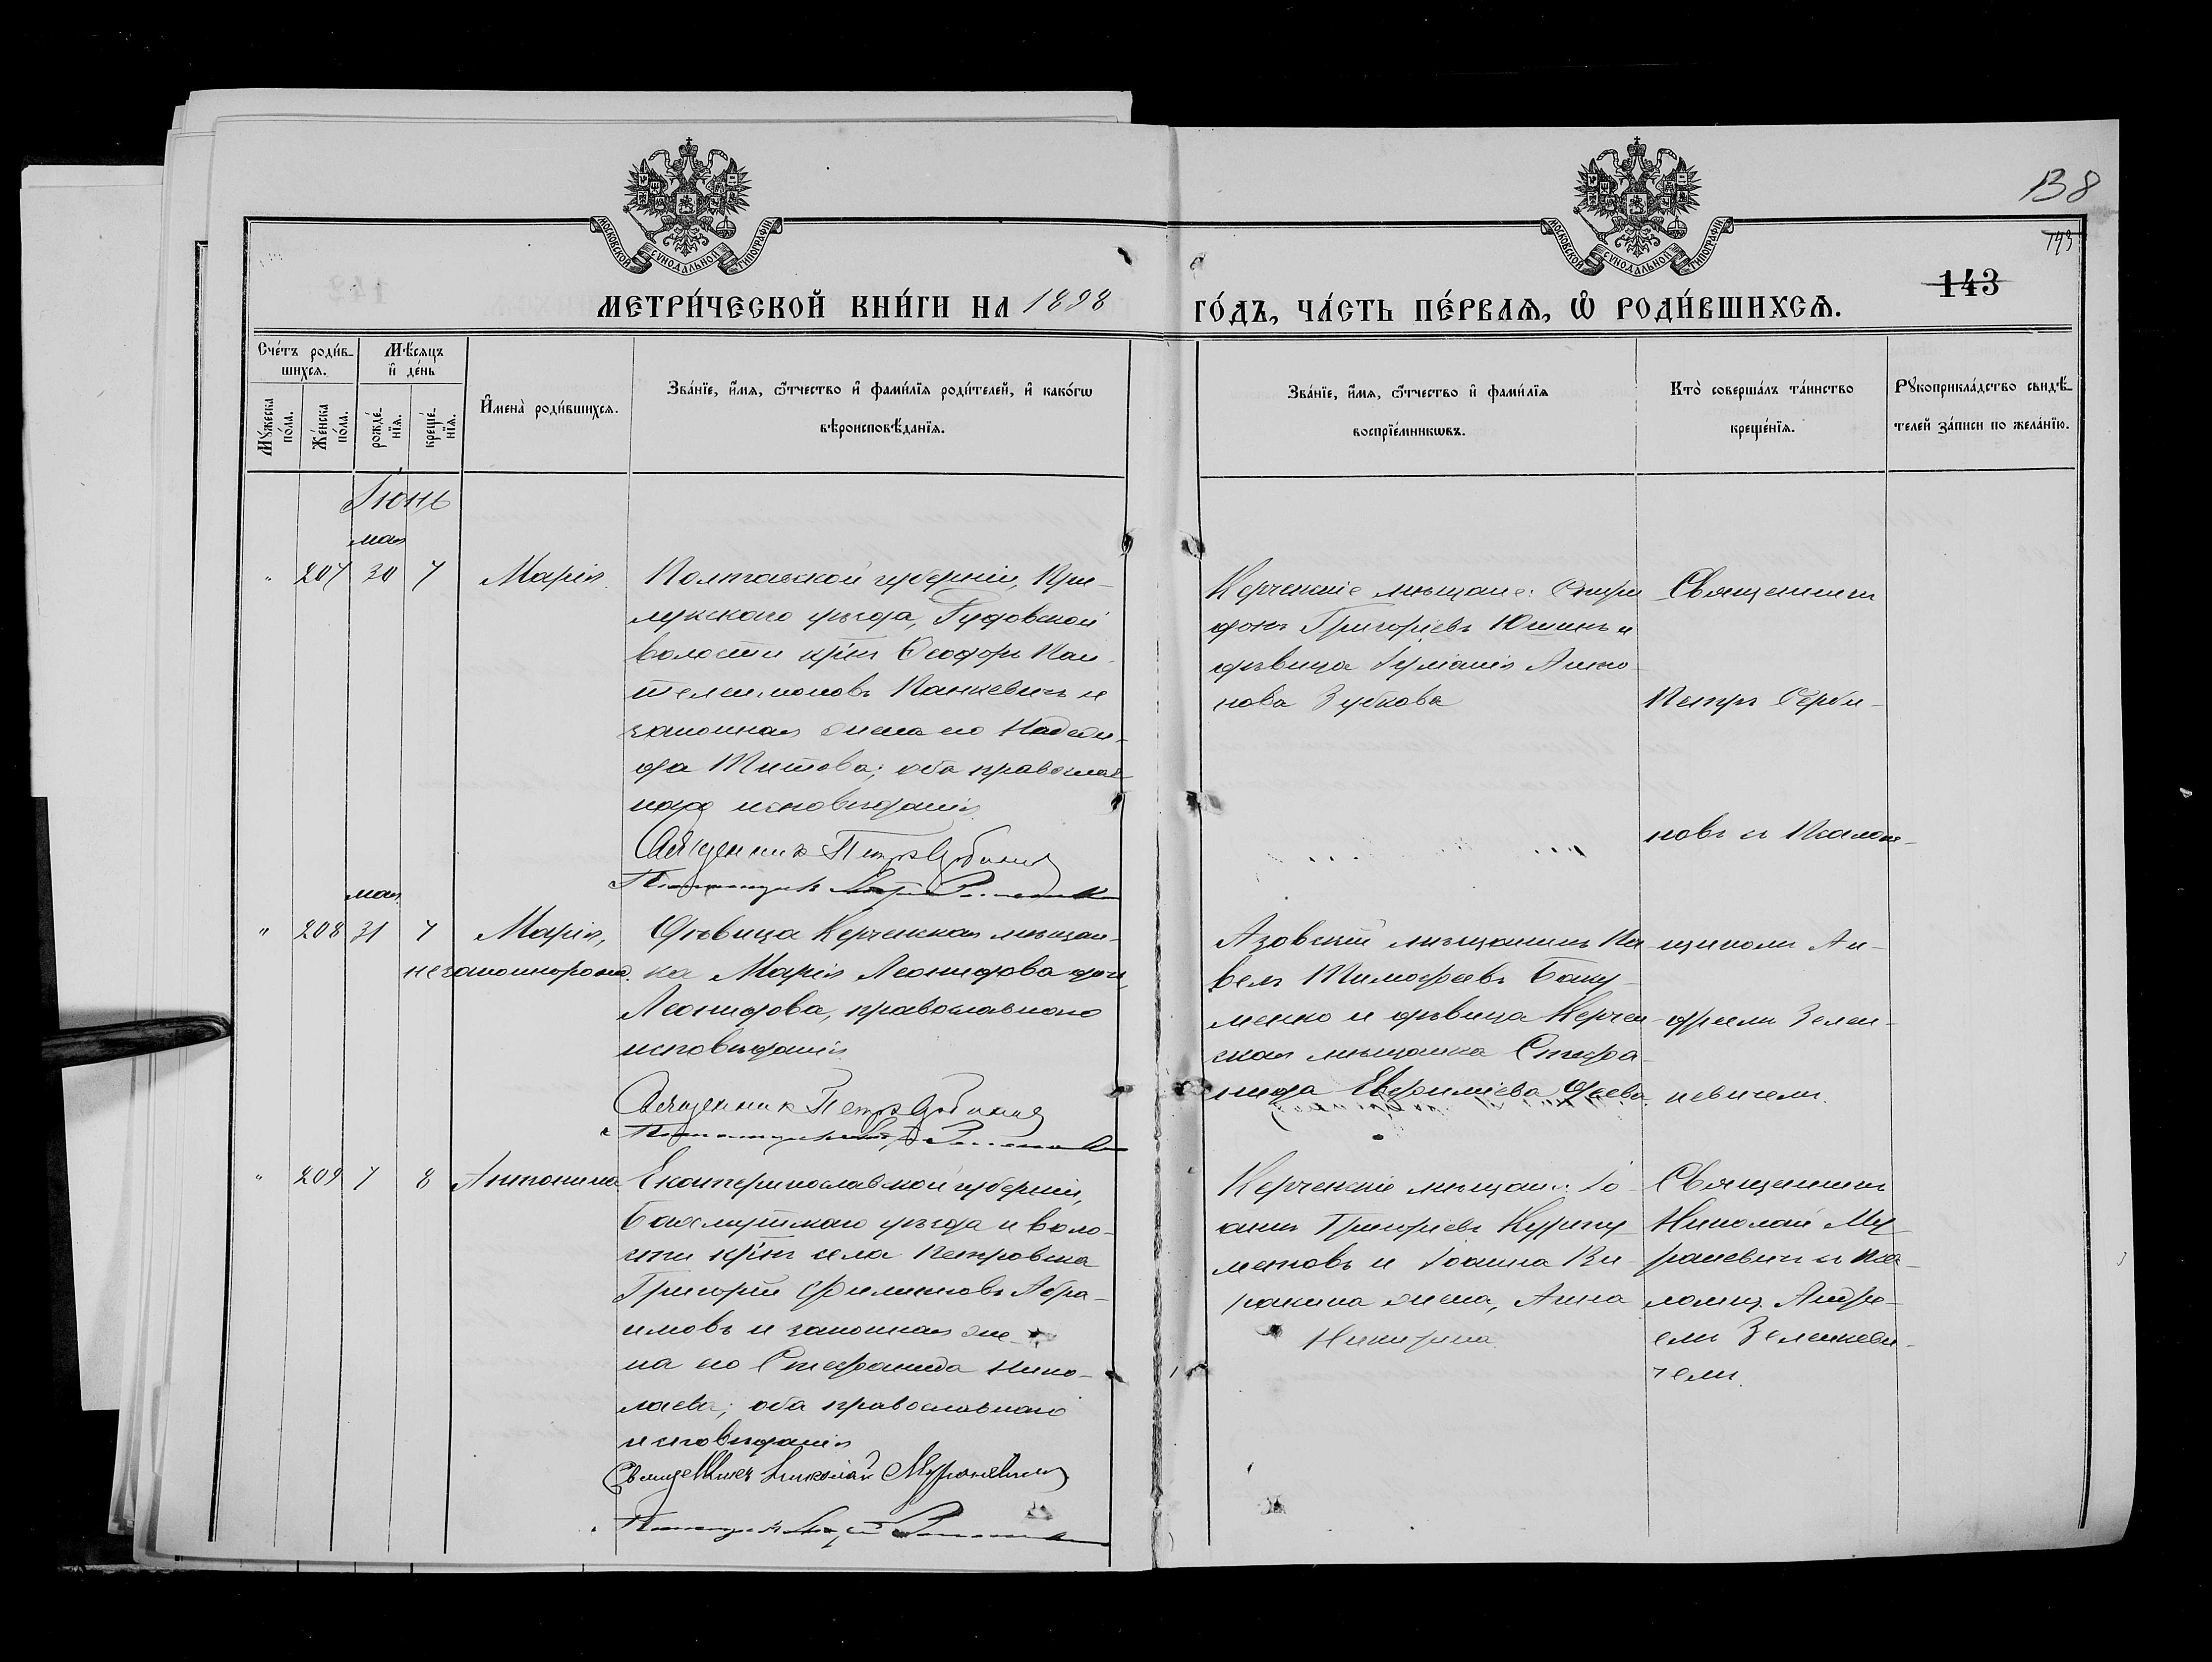 138
143
143
МОСКОВСКОЙ СУНОДАЛЬНОЙ ТИПОГРАФІИ
МОСКОВСКОЙ СУНОДАЛЬНОЙ ТИПОГРАФІИ
МЕТРИ́ЧЕСКОЙ КНИ́ГИ НА 1898 ГО́ДЪ, ЧА́СТЬ ПЕ́РВАѦ, Ѡ҆ РОДИ́ВШИХСѦ.
Сче́тъ роди́в-
шихсѧ.
Мꙋ́жеска по́ла.
Же́нска по́ла.
Мѣ́сяцъ
и҆ де́нь
рожде́-
нїѧ.
креще́-
нїѧ.
И҆мена̀ роди́вшихсѧ.
Зва́нїе, и҆́мѧ, ѻ҆́тчество и҆ фами́лїѧ роди́телей, и҆ како́гѡ
вѣроисповѣ́данїѧ.
Зва́нїе, и҆́мѧ, ѻ҆́тчество и҆ фами́лїѧ
воспрїе́мникѡвъ.
Кто̀ соверша́лъ та́инство
креще́нїѧ.
Рꙋкоприкла́дство свидѣ́-
телей за́писи по жела́нїю.
Іюнь
мая
" 207 30 7 Марія
Полтавской губерніи, При-
лукскаго уѣзда,
волости кр҃нъ Ѳеодоръ Пан-
телеимоновъ Панкевичъ и
законная жена его Надеж-
да Титова; оба православ-
наго исповѣданія.
Священникъ Петръ Сербиновъ
Псаломщикъ
Керченскіе мѣщане: Спири
донъ Григоріевъ Юшинъ и
дѣвица Іуліанія
нова Зубкова
Священникъ
Петръ Серби-
новъ съ Псалом-
щикомъ Ан-
дреемъ Зелен-
кевичемъ.
мая
" 208 31 7 Марія,
незаконнорожд.
Дѣвица Керченская мѣщан-
ка Марія Леонидова
Леонидова, православнаго
исповѣданія
Священникъ Петръ Сербиновъ
Псаломщикъ
Азовскій мѣщанинъ Па-
велъ Тимофеевъ Баку-
менко и дѣвица Керчен-
ская мѣщанка Стефа-
нида Евфиміева
" 209 7 8 Антонина
Екатеринославской губерніи,
Бахмутскаго уѣзда и воло-
сти кр҃нъ села Петровска
Григорій Филиповъ Абра-
имовъ и законная же-
на его Стефанида Нико-
лаева; оба православнаго
исповѣданія
Священникъ Николай Мураневичъ
Псаломщикъ
Керченскіе мѣщане: Іо-
аннъ Григоріевъ
метовъ и Іоанна Ки-
рикина жена, Анна
Священникъ
Николай Му-
раневичъ съ Пса-
ломщ. Андре-
емъ Зеленкеви-
чемъ.